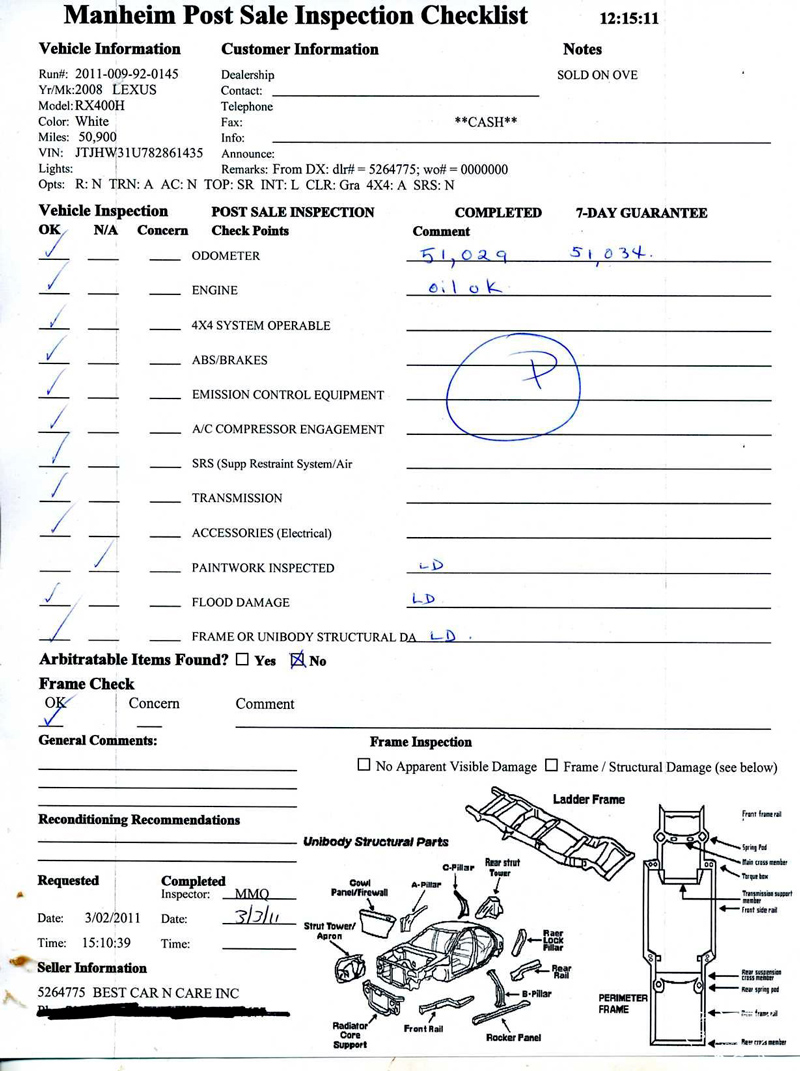 Manheim Post Sale Inspection Checklist 12:15:11
Vehicle Information Customer Information Notes
Run#: 2011-009-92-0145 Dealership SOLD ON OVE
Yr/Mk:2008 LEXUS Contact:
Model:RX400H Telephone
Color: White Fax: **CASH**
Miles: 50,900 Info:
VIN: JTJHW31U782861435 Announce:
Lights: Remarks: From DX: dlr# = 5264775; wo# = 0000000
Opts: R: N TRN: A AC: N TOP: SR INT: L CLR: Gra 4X4: A SRS: N
Vehicle Inspection POST SALE INSPECTION COMPLETED 7-DAY GUARANTEE
OK N/A Concern Check Points Comment
ODOMETER 51,029 51,034.
ENGINE oil ok
4X4 SYSTEM OPERABLE
ABS/BRAKES
P
EMISSION CONTROL EQUIPMENT
A/C COMPRESSOR ENGAGEMENT
SRS (Supp Restraint System/Air
TRANSMISSION
ACCESSORIES (Electrical)
PAINTWORK INSPECTED LD
FLOOD DAMAGE LD
FRAME OR UNIBODY STRUCTURAL DA LD.
Arbitratable Items Found? Yes No
Frame Check
OK Concern Comment
General Comments: Frame Inspection
No Apparent Visible Damage Frame / Structural Damage (see below)
Reconditioning Recommendations
Requested Completed
Inspector: MMQ
Date: 3/02/2011 Date: 3/3/11
Time: 15:10:39 Time:
Seller Information
5264775 BEST CAR N CARE INC
Ladder Frame
Unibody Structural Parts
C-Pillar
Rear strut
Tower
Cowl
Panel/Firewall
A-Pillar
Strut Tower/
Apron
Raer
LOCK
Pillar
Rear
Rail
B-Pillar
Radiator
Core
Support
Front Rail
Rocker Panel
PERIMETER
FRAME
Front frame rail
Spring Pod
Main cross member
Torque box
Transmission support
member
Front side rail
Rear suspension
cross member
Rear spring pod
frame rail
Rear cross member